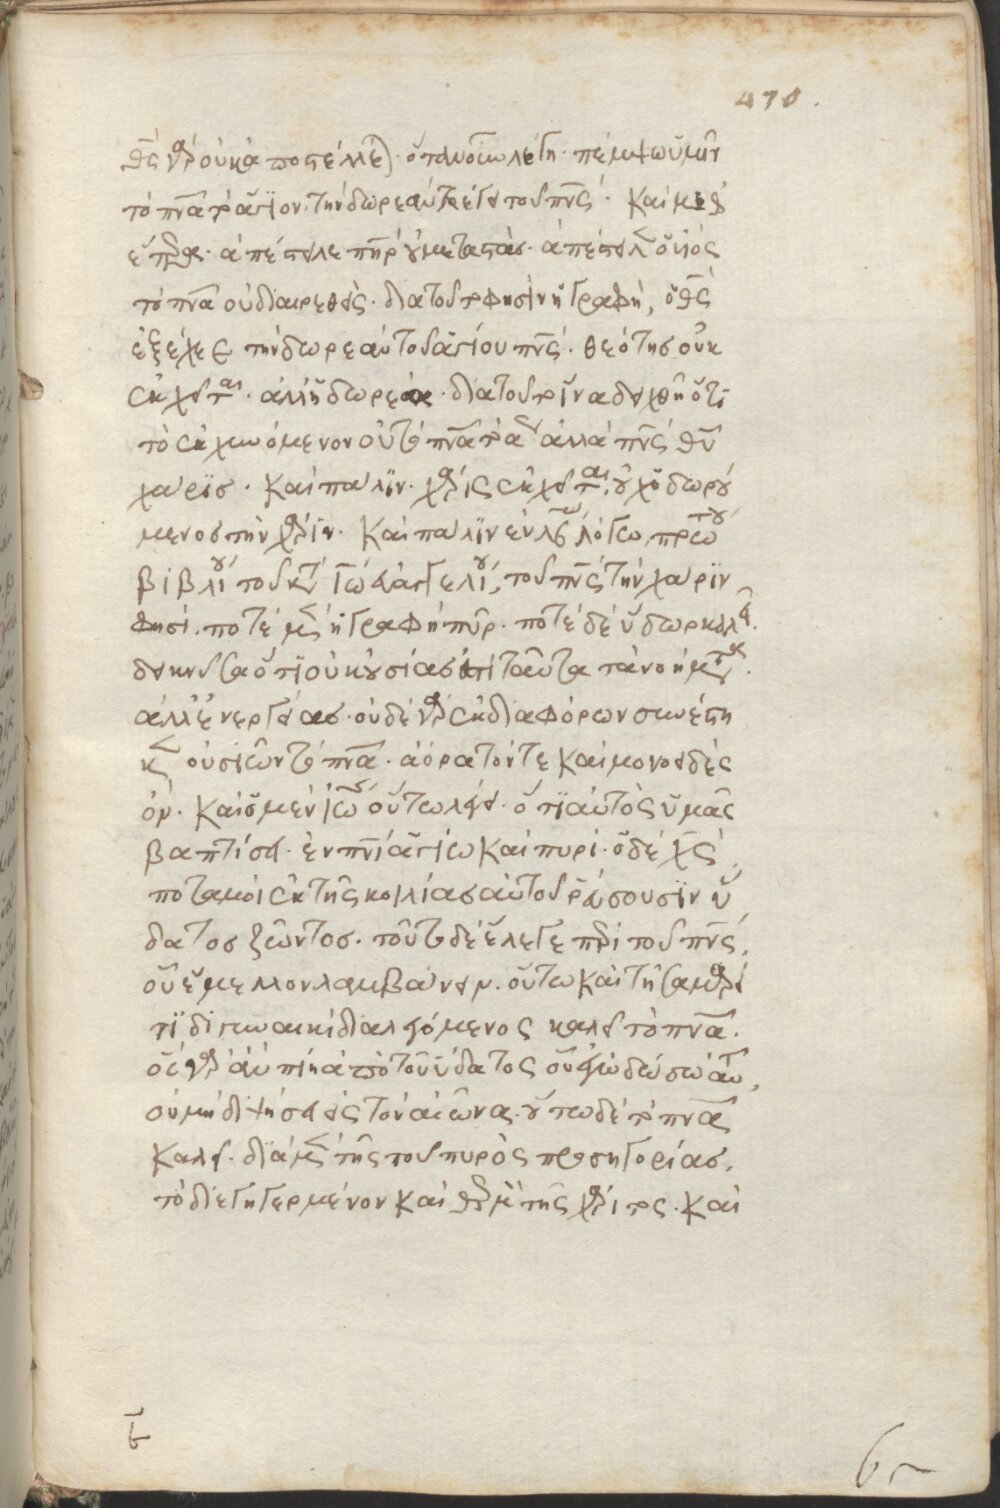 470.
θς γὰρ οὐκ ἀποστέλλεται· ὅταν οὖν λέγη· πέμψω ὑμῖν
τὸ πνα τὸ ἅγιον· τὴν δωρεὰν λέγει τοῦ πνς· καὶ
ἀπέστειλε πηρ ἀπέστειλεν ὁ υἱὸς
τὸ πνα οὐ διαιρεθείς· διὰ τοῦτο φησὶν ἡ γραφή, ὁ θς
ἐξέχεε τὴν δωρεὰν τοῦ ἁγίου πνς· θεότης οὐκ
ἐκχεῖται· ἀλλ' ἡ δωρεὰ· διὰ τοῦτο ἵνα δειχθῆ ὅτι
τὸ ἐκχεόμενον οὐ τὸ πνα τὸ ἅγιον ἀλλὰ πνς θυ
χάρις· καὶ πάλιν· χάρις ἐκχεῖται, οὐχ ὁ δωρού
μενος τὴν χάριν· καὶ πάλιν ἐν λόγω πρώτου
βιβλίου τοῦ κατὰ ἰω εὐαγγελίου, τοῦ πνς τὴν χάριν
φησὶ· ποτὲ μὲν ἡ γραφὴ πῦρ· ποτὲ δὲ ὕδωρ καλεῖ·
δεικνῦσα ὅτι οὐκ οὐσίας ἐστὶ ταῦτα τὰ νοήματα·
ἀλλ' ἐνεργείας· οὐδὲ γὰρ ἐκ διαφόρων συνέστη
κεν οὐσιῶν τὸ πνα· ἀόρατόν τε καὶ μονοειδὲς
ὄν· καὶ ὁ μὲν ἰω οὕτω λέγει· ὅτι αὐτὸς ὑμᾶς
βαπτίσει· ἐν πνι ἁγίω καὶ πυρί· ὁ δὲ χς
ποταμοὶ ἐκ τῆς κοιλίας αὐτοῦ ῥεύσουσιν ὕ
δατος ζῶντος· τοῦτο δὲ ἔλεγε περὶ τοῦ πνς,
οὗ ἔμελλον λαμβάνειν· οὕτω καὶ τῆ σαμαρεί
τιδι γυναικὶ διαλεγόμενος καλεῖ τὸ πνα·
ὃς γὰρ ἂν πίη ἀπὸ τοῦ ὕδατος οὗ ἐγὼ δώσω αὐτῶ,
οὐ μὴ διψήσει εἰς τὸν αἰῶνα· οὕτω δὲ τὸ πνα
καλεῖ· διὰ μὲν τῆς τοῦ πυρὸς προσηγορίας,
τὸ διεγηγερμένον καὶ θερμὸν τῆς χάριτος· καὶ
6~